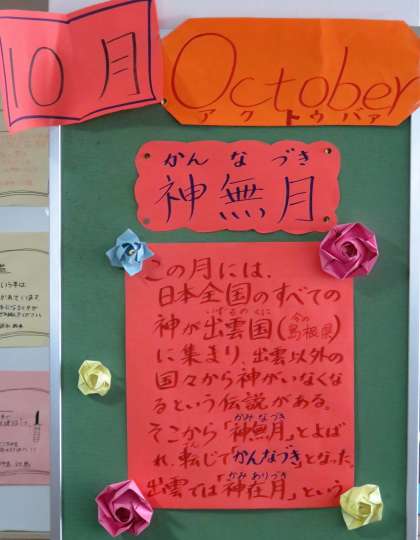 10月
October
アクトウバァ
かんなづき
神無月
この月には、
日本全国のすべての
いずものくに
神が出雲国(今の島根県)
に集まり、出雲以外の
国々から神がいなくな
るという伝説がある。
かみなづき
そこから「神無月」とよば
てん
れ、転じて「かんなづき」となった。
かみありづき
出雲では「神在月」という